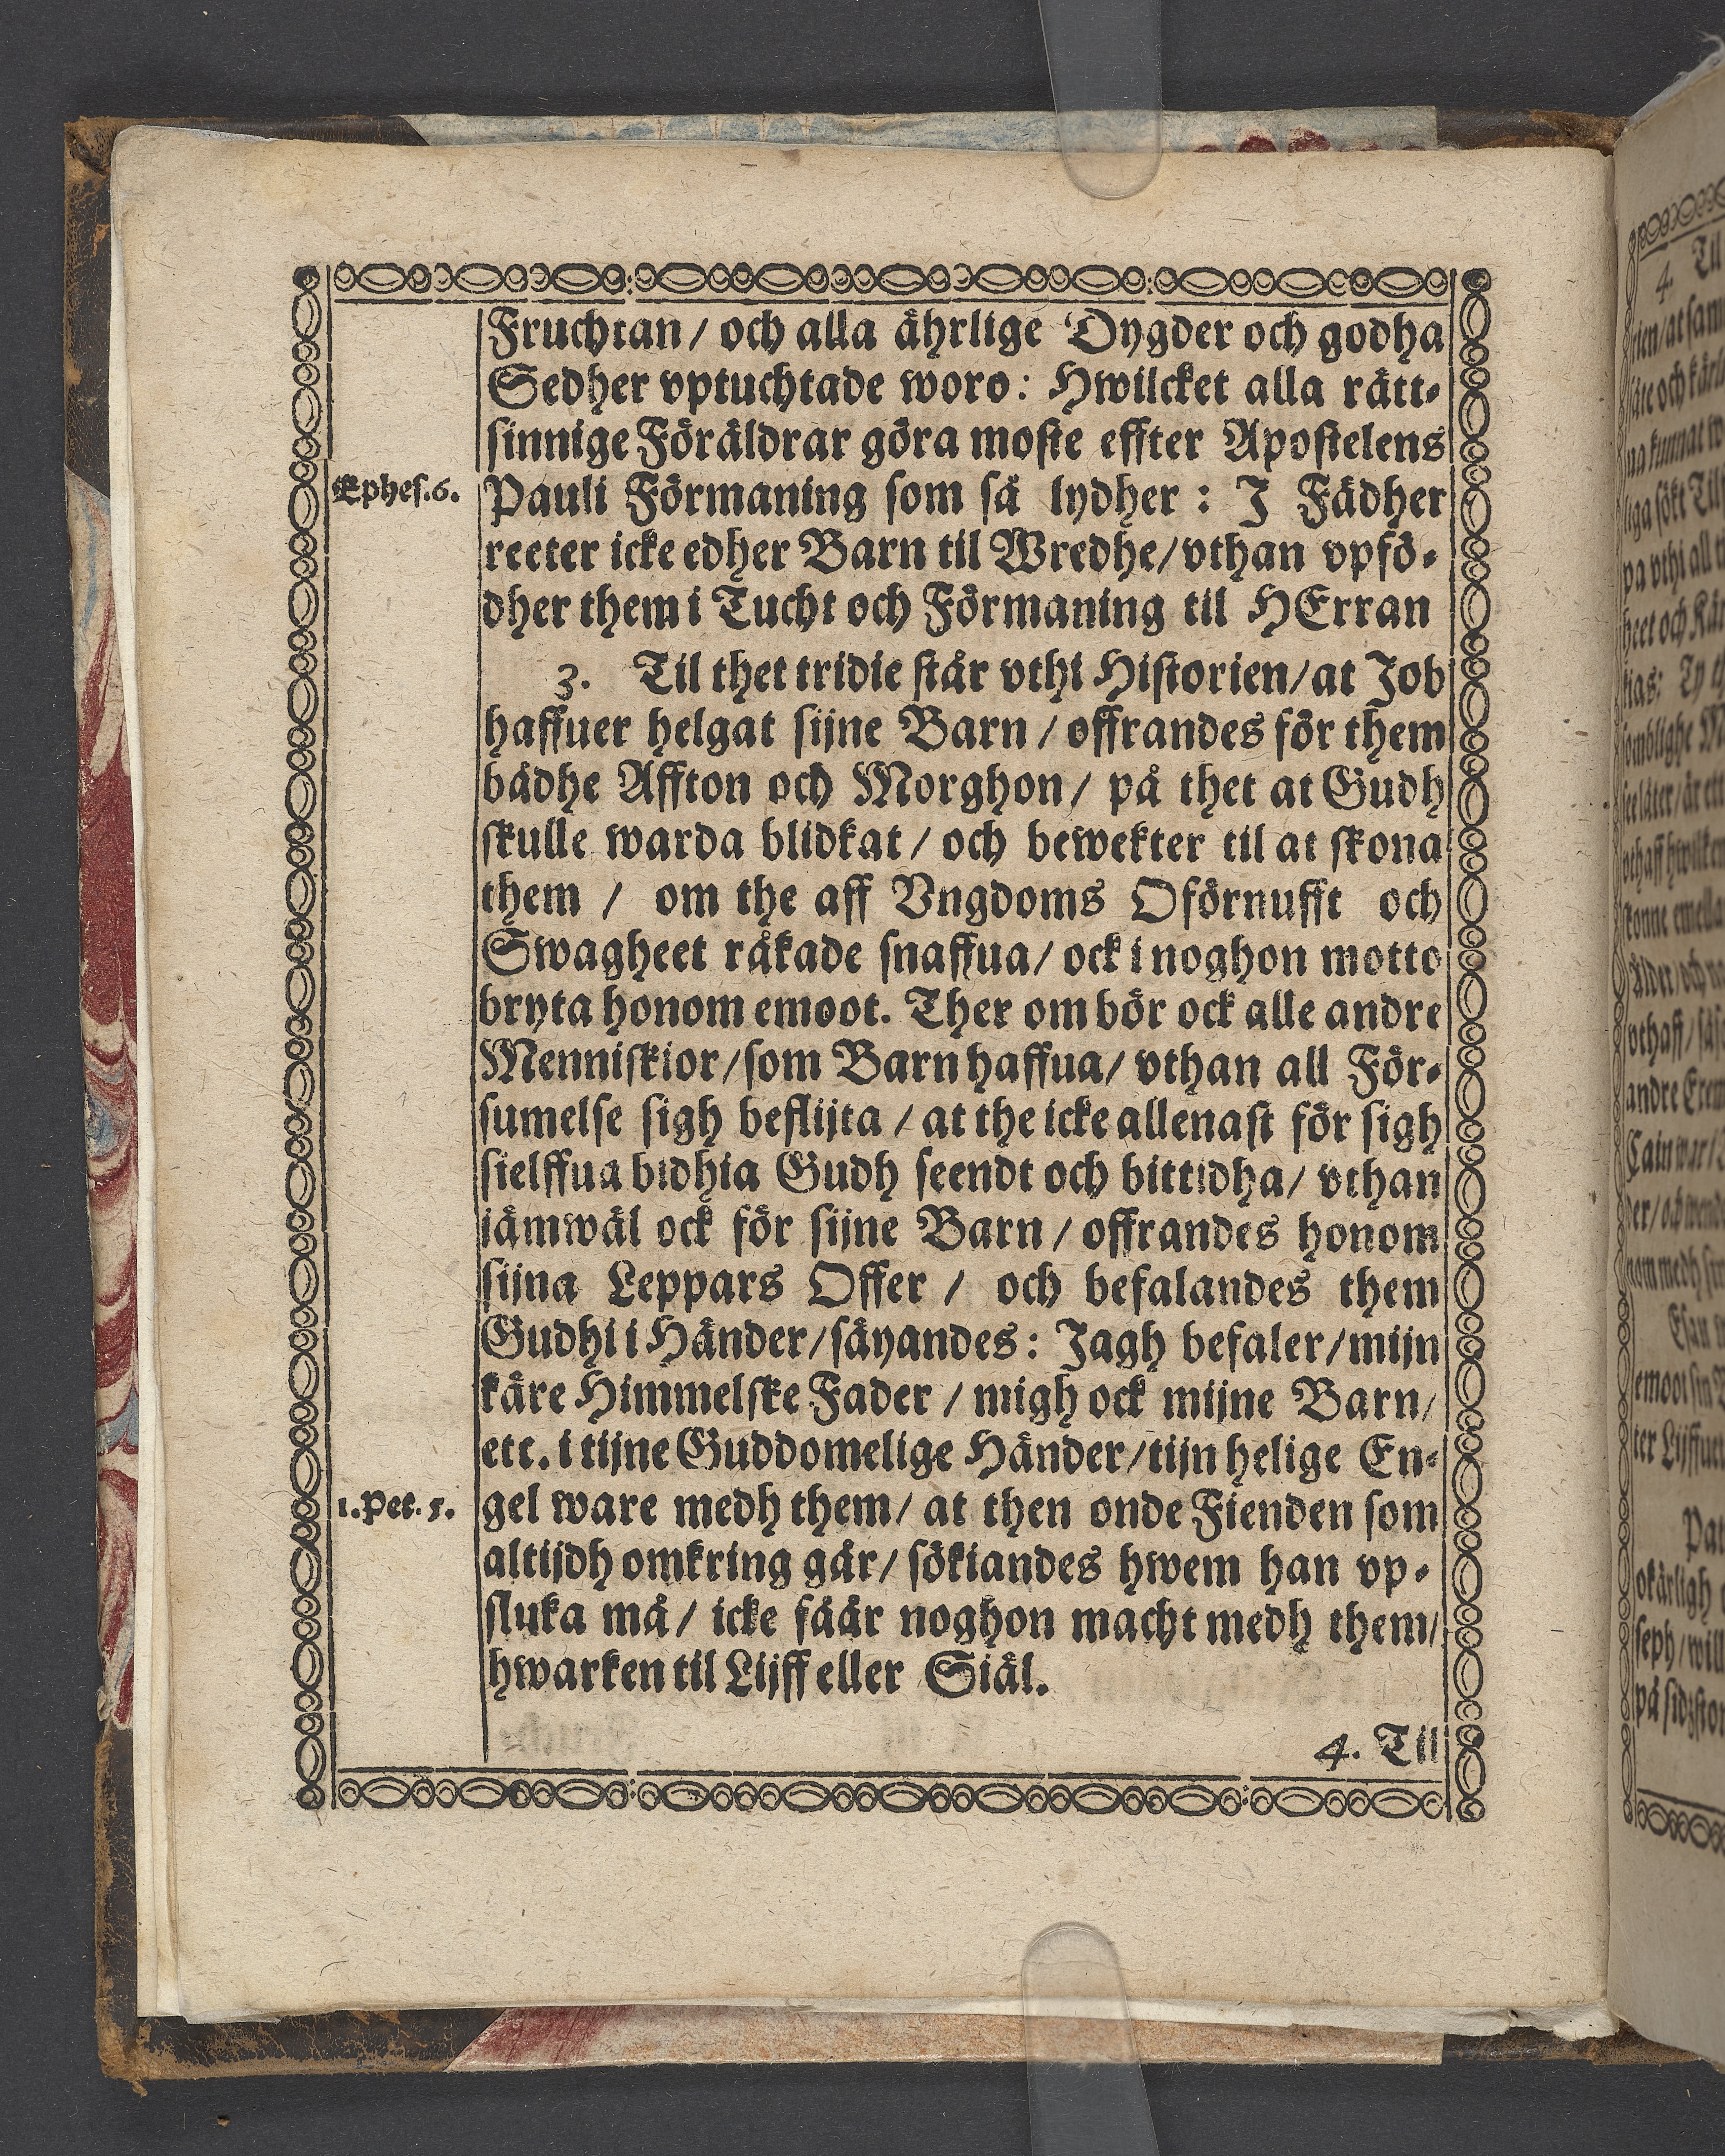 Fruchtan / och alla ährlige Dygder och godha
Sedher vptuchtade woro: Hwilcket alla rätt-
sinnige Föräldrar göra moste effter Apostelens
Ephes.6.
Pauli Förmaning som så lydher : J Fädher
reeter icke edher Barn til Wredhe/ vthan vpfö-
dher them i Tucht och Förmaning til HErran
3. Til thet tridie står vthi Historien/ at Job
haffuer helgat sijne Barn / offrandes för them
bådhe Affton och Morghon / på thet at Gudh
skulle warda blidkat / och bewekter til at skona
them / om the aff Vngdoms Oförnufft och
Swagheet råkade snaffua/ ock i noghon motto
bryta honom emoot. Ther om bör ock alle andre
Menniskior/ som Barn haffua/ vthan all För-
sumelse sigh beflijta / at the icke allenast för sigh
sielffua bidhia Gudh seendt och bittidha/ vthan
iämwäl ock för sijne Barn / offrandes honom
sijna Leppars Offer / och befalandes them
Gudhi i Händer/ säyandes : Jagh befaler/ mijn
käre Himmelske Fader / migh ock mijne Barn/
ett. i tijne Guddomelige Händer/ tijn helige En-
1.Pet.5.
gel ware medh them/ at then onde Fienden som
altijdh omkring går/ sökiandes hwem han vp-
sluka må / icke fåår noghon macht medh them/
hwarken til Lijff eller Siäl.
4. Til